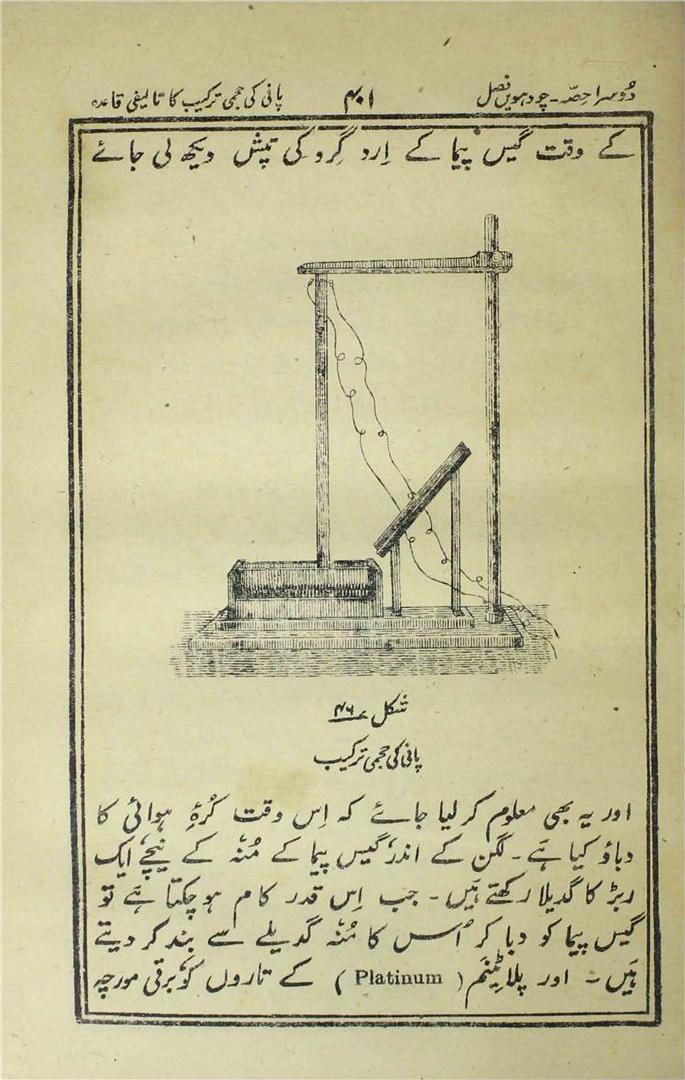 دُوسرا حِصّہ۔ چودھویں فصل
۴۰۱
پانی کی حجمی ترکیب کا تالیفی قاعدہ
کے وقت گیس پیما کے اِرد گرد کی تپش دیکھ لی جائے
شکل ۴۶
پانی کی حجمی ترکیب
اور یہ بھی معلوم کر لیا جائے کہ اِس وقت کُرۂ ہوائی کا
دباؤ کیا ہَے۔ لگن کے اندر گیس پیما کے مُنہ کے نیچے ایک
ربڑ کا گدیلا رکھتے ہَیں۔ جب اِس قدر کام ہو چکتا ہَے تو
گیس پیما کو دبا کر اُس کا مُنہ گدیلے سے بند کر دیتے
ہَیں۔ اور پلاٹِینَم (Platinum) کے تاروں کو برقی مورچہ